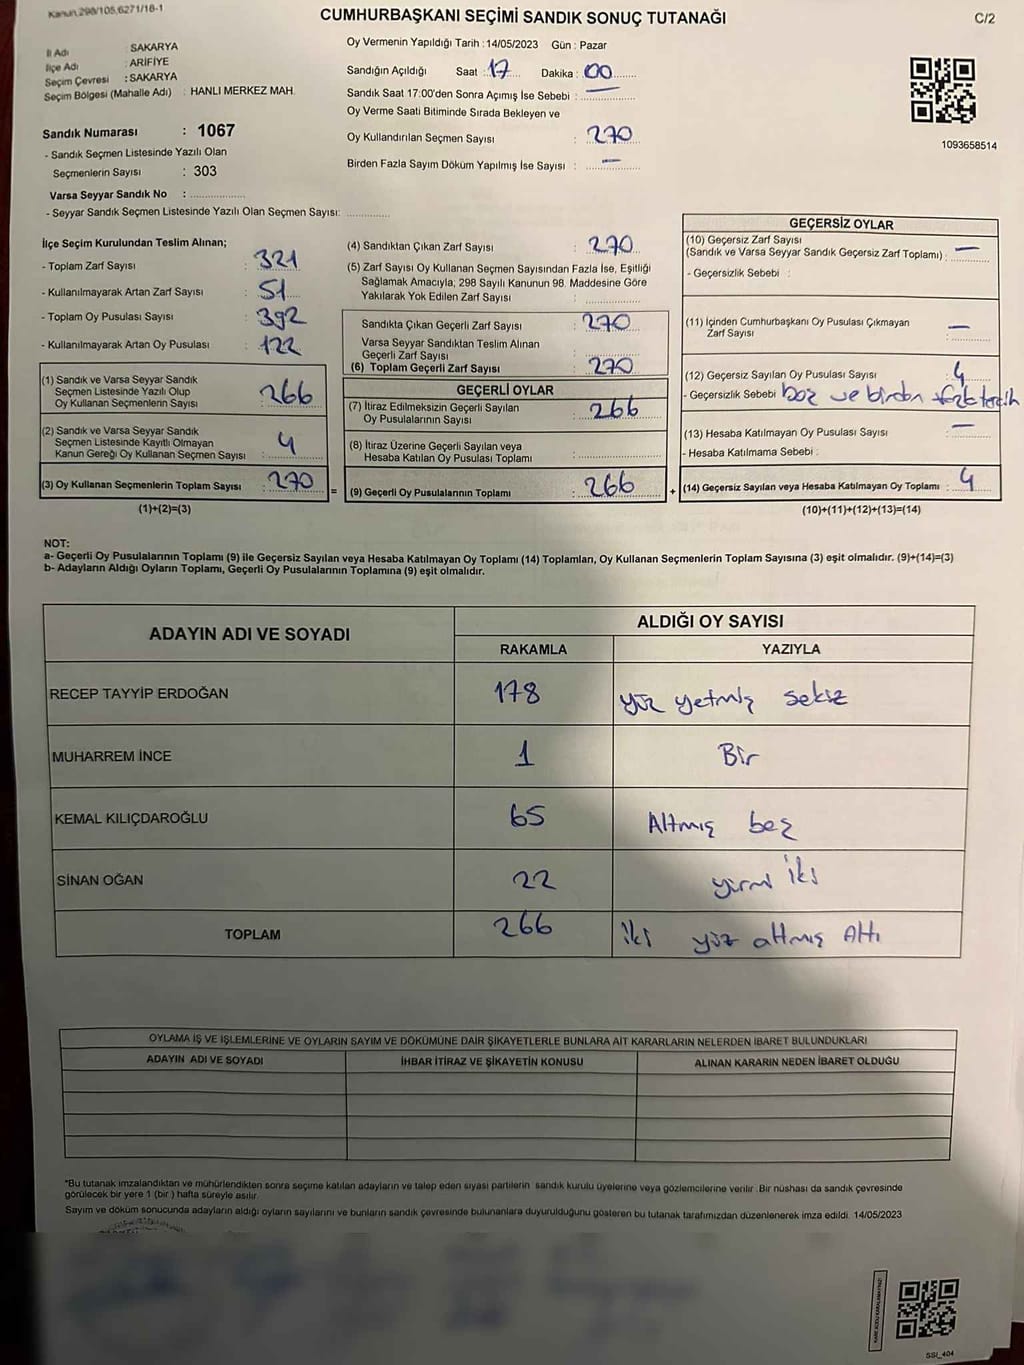 Kanun,298/105,6271/18-1
CUMHURBAŞKANI SEÇİMİ SANDIK SONUÇ TUTANAĞI
C/2
İl Adı : SAKARYA
İlçe Adı : ARİFİYE
Seçim Çevresi : SAKARYA
Seçim Bölgesi (Mahalle Adı) : HANLI MERKEZ MAH.
Sandık Numarası : 1067
- Sandık Seçmen Listesinde Yazılı Olan
Seçmenlerin Sayısı : 303
Varsa Seyyar Sandık No :
- Seyyar Sandık Seçmen Listesinde Yazılı Olan Seçmen Sayısı:
Oy Vermenin Yapıldığı Tarih : 14/05/2023 Gün : Pazar
Sandığın Açıldığı Saat : 17 Dakika : 00
Sandık Saat 17:00'den Sonra Açımış İse Sebebi : —
Oy Verme Saati Bitiminde Sırada Bekleyen ve
Oy Kullandırılan Seçmen Sayısı : 270
Birden Fazla Sayım Döküm Yapılmış İse Sayısı : —
1093658514
İlçe Seçim Kurulundan Teslim Alınan;
- Toplam Zarf Sayısı : 321
- Kullanılmayarak Artan Zarf Sayısı : 51
- Toplam Oy Pusulası Sayısı : 392
- Kullanılmayarak Artan Oy Pusulası : 122
(1) Sandık ve Varsa Seyyar Sandık
Seçmen Listesinde Yazılı Olup
Oy Kullanan Seçmenlerin Sayısı : 266
(2) Sandık ve Varsa Seyyar Sandık
Seçmen Listesinde Kayıtlı Olmayan
Kanun Gereği Oy Kullanan Seçmen Sayısı : 4
(3) Oy Kullanan Seçmenlerin Toplam Sayısı : 270
(1)+(2)=(3)
(4) Sandıktan Çıkan Zarf Sayısı : 270
(5) Zarf Sayısı Oy Kullanan Seçmen Sayısından Fazla İse, Eşitliği
Sağlamak Amacıyla; 298 Sayılı Kanunun 98. Maddesine Göre
Yakılarak Yok Edilen Zarf Sayısı :
Sandıkta Çıkan Geçerli Zarf Sayısı : 270
Varsa Seyyar Sandıktan Teslim Alınan
Geçerli Zarf Sayısı :
(6) Toplam Geçerli Zarf Sayısı : 270
GEÇERLİ OYLAR
(7) İtiraz Edilmeksizin Geçerli Sayılan
Oy Pusulalarının Sayısı : 266
(8) İtiraz Üzerine Geçerli Sayılan veya
Hesaba Katılan Oy Pusulası Toplamı :
= (9) Geçerli Oy Pusulalarının Toplamı : 266
GEÇERSİZ OYLAR
(10) Geçersiz Zarf Sayısı
(Sandık ve Varsa Seyyar Sandık Geçersiz Zarf Toplamı) : —
- Geçersizlik Sebebi :
(11) İçinden Cumhurbaşkanı Oy Pusulası Çıkmayan
Zarf Sayısı : —
(12) Geçersiz Sayılan Oy Pusulası Sayısı : 4
- Geçersizlik Sebebi boz ve birden fazla tercih
(13) Hesaba Katılmayan Oy Pusulası Sayısı : —
- Hesaba Katılmama Sebebi :
+ (14) Geçersiz Sayılan veya Hesaba Katılmayan Oy Toplamı : 4
(10)+(11)+(12)+(13)=(14)
NOT:
a- Geçerli Oy Pusulalarının Toplamı (9) ile Geçersiz Sayılan veya Hesaba Katılmayan Oy Toplamı (14) Toplamları, Oy Kullanan Seçmenlerin Toplam Sayısına (3) eşit olmalıdır. (9)+(14)=(3)
b- Adayların Aldığı Oyların Toplamı, Geçerli Oy Pusulalarının Toplamına (9) eşit olmalıdır.
ADAYIN ADI VE SOYADI
ALDIĞI OY SAYISI
RAKAMLA YAZIYLA
RECEP TAYYİP ERDOĞAN 178 yüz yetmiş sekiz
MUHARREM İNCE 1 Bir
KEMAL KILIÇDAROĞLU 65 Altmış beş
SİNAN OĞAN 22 yirmi iki
TOPLAM 266 iki yüz altmış Altı
OYLAMA İŞ VE İŞLEMLERİNE VE OYLARIN SAYIM VE DÖKÜMÜNE DAİR ŞİKAYETLERLE BUNLARA AİT KARARLARIN NELERDEN İBARET BULUNDUKLARI
ADAYIN ADI VE SOYADI İHBAR İTİRAZ VE ŞİKAYETİN KONUSU ALINAN KARARIN NEDEN İBARET OLDUĞU
*Bu tutanak imzalandıktan ve mühürlendikten sonra seçime katılan adayların ve talep eden siyasi partilerin sandık kurulu üyelerine veya gözlemcilerine verilir. Bir nüshası da sandık çevresinde
görülecek bir yere 1 (bir) hafta süreyle asılır.
Sayım ve döküm sonucunda adayların aldığı oyların sayılarını ve bunların sandık çevresinde bulunanlara duyurulduğunu gösteren bu tutanak tarafımızdan düzenlenerek imza edildi. 14/05/2023
SSI_404